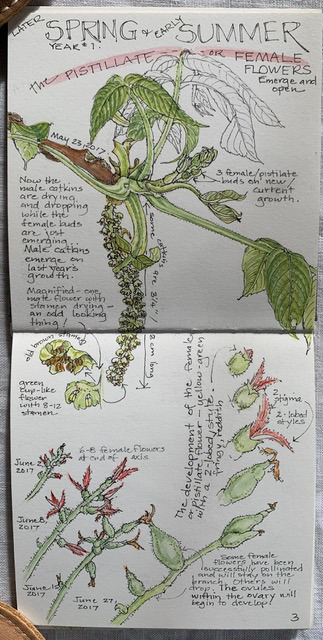 LATER SPRING & EARLY SUMMER
YEAR #1.
the PISTILLATE OR FEMALE
FLOWERS
Emerge and
open
May 23, 2017
3 female/pistilate
buds on new/
current
growth.
Now the
male catkins
are drying
and dropping
while the
female buds
are just
emerging.
Male catkins
emerge on
last year's
growth.
Magnified - one
male flower with
stamen drying -
an odd looking
thing!
Some catkins are 3/4"/
12 cm long
old brown stamen
green
cup-like
flower
with 8-12
stamen.
The development of the female
or pistillate flower, yellow green
w/ a 2-lobed/style.
fringy, reddish
2
stigma
2-lobed
styles
6-8 female flowers
at end of axis
June 2
2017
June 8,
2017
June 15
2017
June 27
2017
Some female
flowers have been
successfully pollinated
and will stay on the
branch. Others will
drop. The ovules
within the ovary will
begin to develop!
3